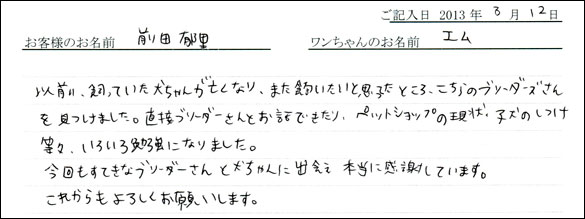 ご記入日 2013 年 3 月 12 日
お客様のお名前 前田 郁里 ワンちゃんのお名前 エム
以前、飼っていた犬ちゃんが亡くなり、また飼いたいと思ったところ、こちらのブリーダーズさん
を見つけました。直接ブリーダーさんとお話できたり、ペットショップの現状、子犬のしつけ
等々、いろいろ勉強になりました。
今回もすてきなブリーダーさんと犬ちゃんに出会え 本当に感謝しています。
これからもよろしくお願いします。